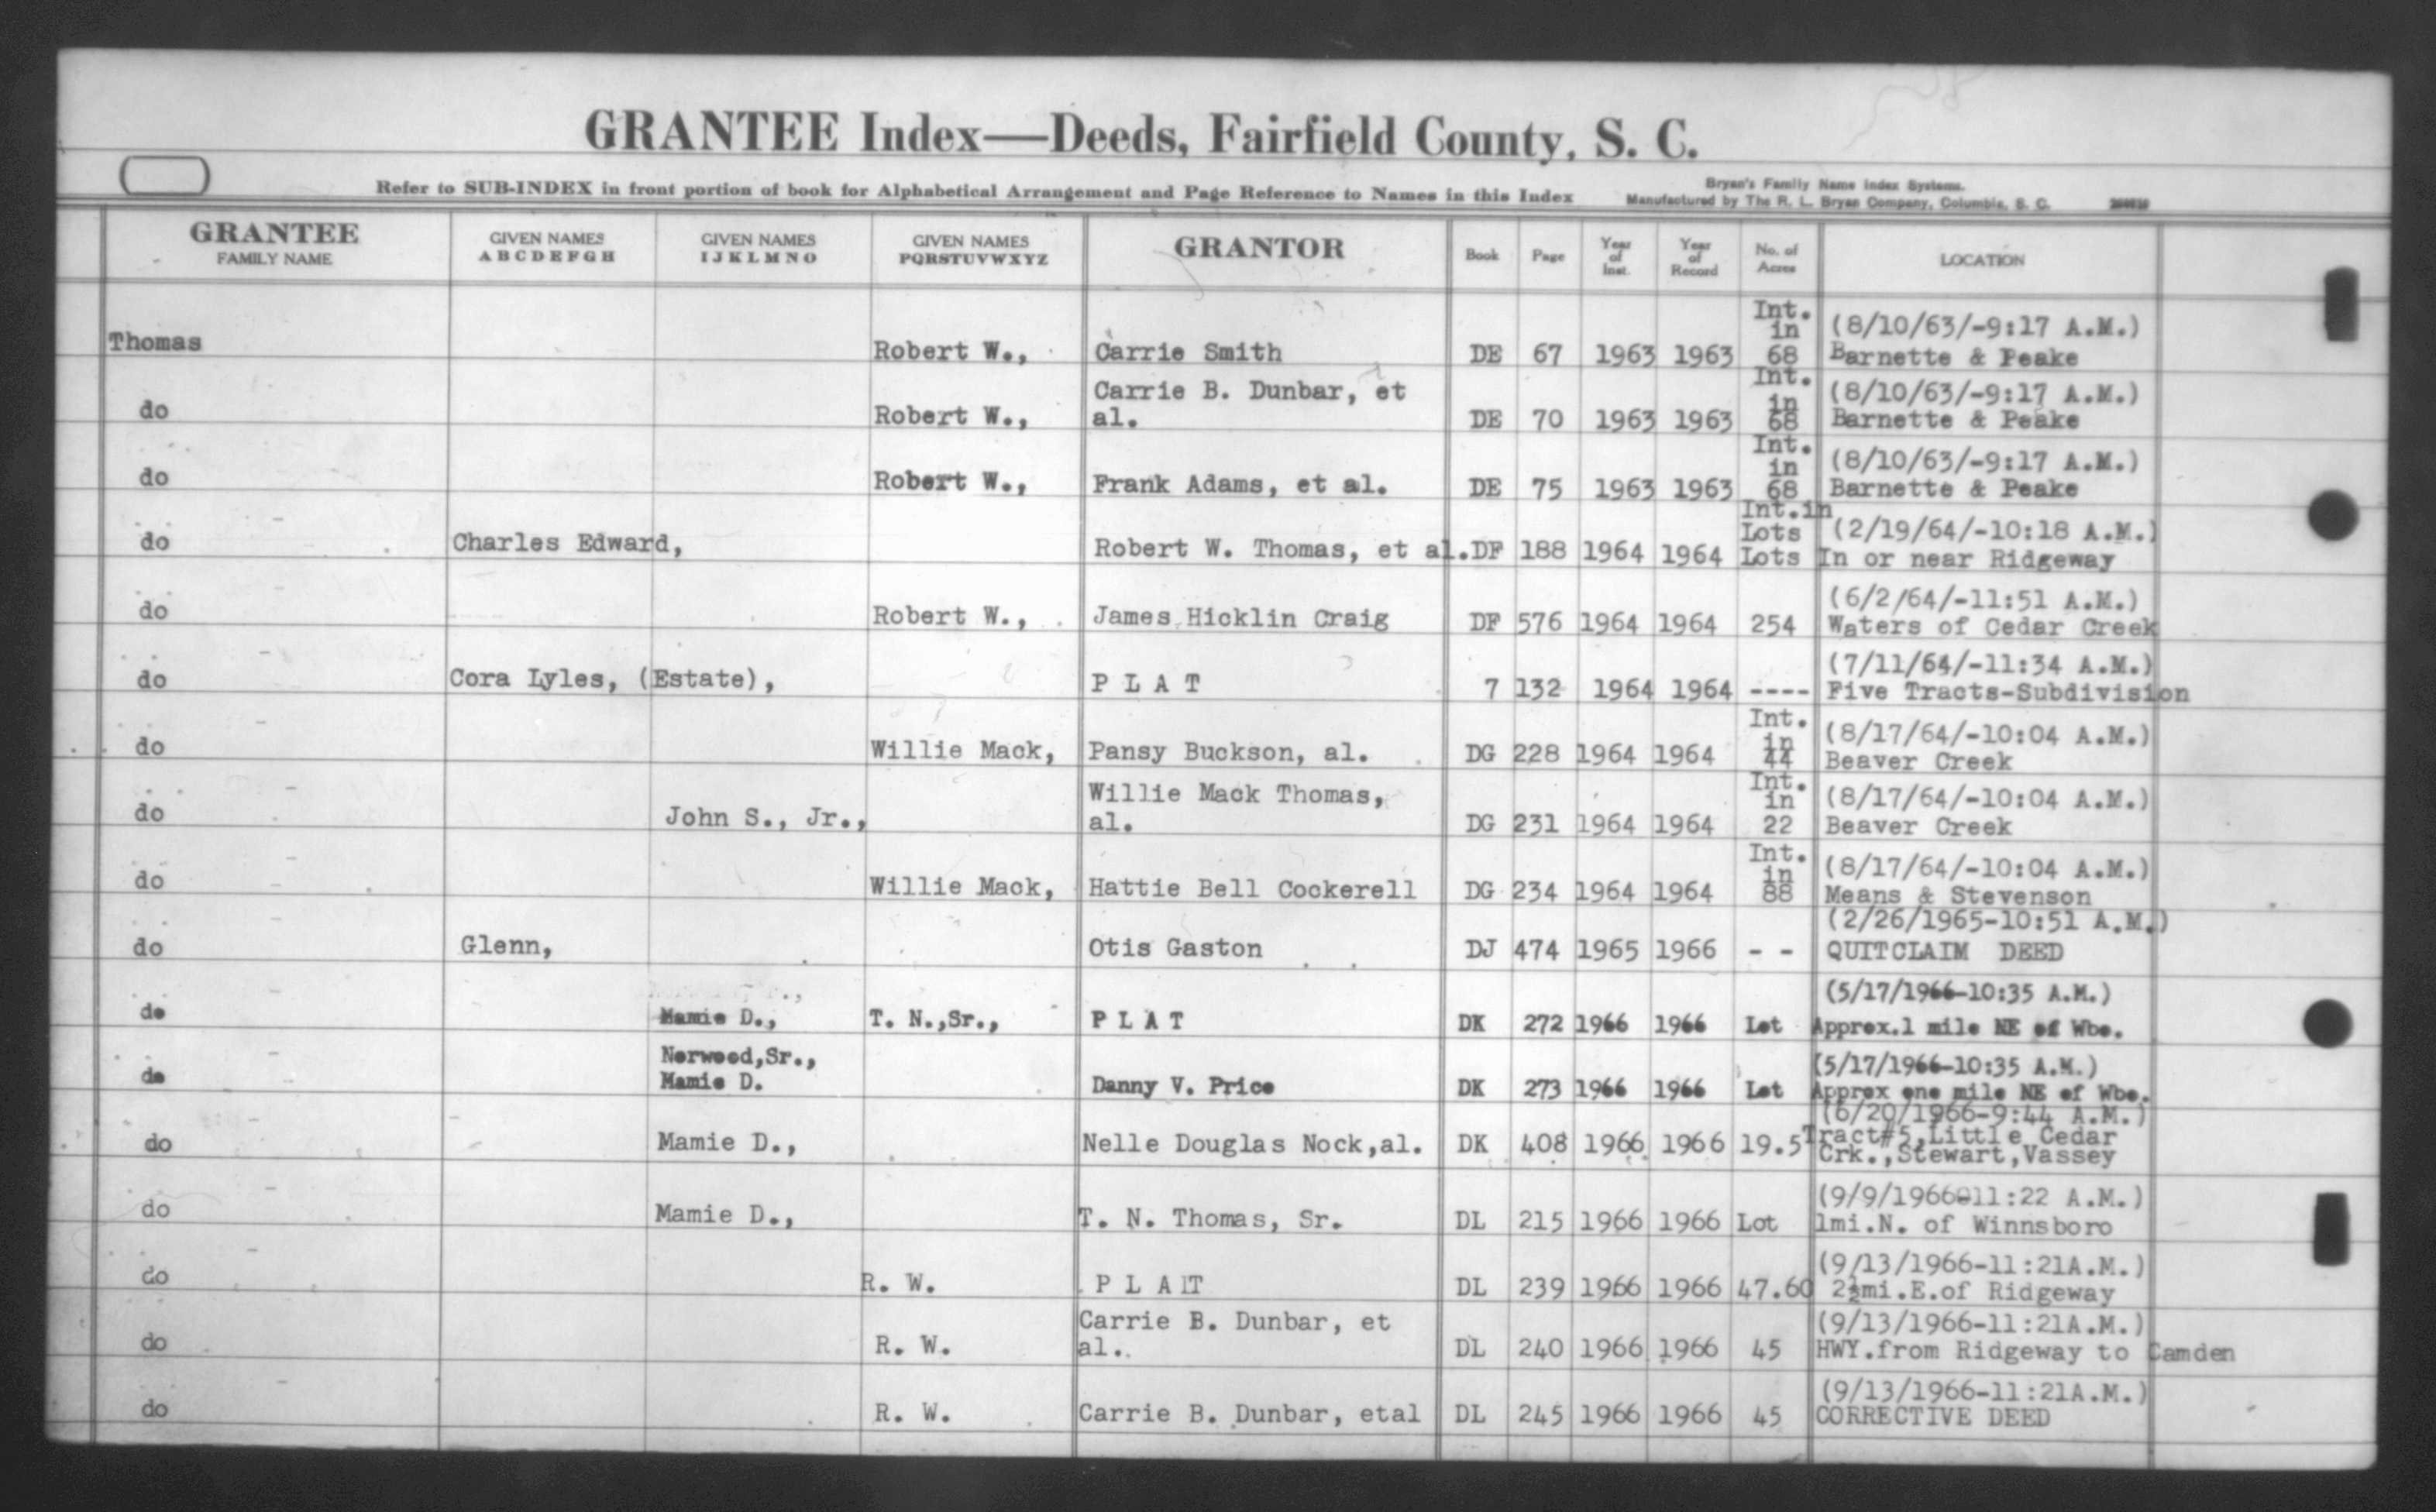 GRANTEE Index—Deeds, Fairfield County, S. C.
Refer to SUB-INDEX in front portion of book for Alphabetical Arrangement and Page Reference to Names in this Index
Bryan's Family Name Index Systems.
Manufactured by The R. L. Bryan Company, Columbia, S. C.
GRANTEE FAMILY NAME | GIVEN NAMES ABCDEFGH | GIVEN NAMES IJKLMNO | GIVEN NAMES PQRSTUVWXYZ | GRANTOR | Book | Page | Year of Inst. | Year of Record | No. of Acres | LOCATION
Thomas Robert W., Carrie Smith DE 67 1963 1963 Int. in 68 (8/10/63/-9:17 A.M.) Barnette & Peake
do Robert W., Carrie B. Dunbar, et al. DE 70 1963 1963 Int. in 68 (8/10/63/-9:17 A.M.) Barnette & Peake
do Robert W., Frank Adams, et al. DE 75 1963 1963 Int. in 68 (8/10/63/-9:17 A.M.) Barnette & Peake
do Charles Edward, Robert W. Thomas, et al. DF 188 1964 1964 Int.in Lots Lots (2/19/64/-10:18 A.M.) In or near Ridgeway
do Robert W., James Hicklin Craig DF 576 1964 1964 254 (6/2/64/-11:51 A.M.) Waters of Cedar Creek
do Cora Lyles, (Estate), P L A T 7 132 1964 1964 ---- (7/11/64/-11:34 A.M.) Five Tracts-Subdivision
do Willie Mack, Pansy Buckson, al. DG 228 1964 1964 Int. in 44 (8/17/64/-10:04 A.M.) Beaver Creek
do John S., Jr., Willie Mack Thomas, al. DG 231 1964 1964 Int. in 22 (8/17/64/-10:04 A.M.) Beaver Creek
do Willie Mack, Hattie Bell Cockerell DG 234 1964 1964 Int. in 88 (8/17/64/-10:04 A.M.) Means & Stevenson
do Glenn, Otis Gaston DJ 474 1965 1966 - - (2/26/1965-10:51 A.M.) QUITCLAIM DEED
do Mamie D., T. N.,Sr., P L A T DK 272 1966 1966 Lot (5/17/1966-10:35 A.M.) Approx.1 mile NE of Wbo.
do Norwood,Sr., Mamie D. Danny V. Price DK 273 1966 1966 Lot (5/17/1966-10:35 A.M.) Approx one mile NE of Wbo.
do Mamie D., Nelle Douglas Nock,al. DK 408 1966 1966 19.5 (6/20/1966-9:44 A.M.) Tract#5,Little Cedar Crk.,Stewart,Vassey
do Mamie D., T. N. Thomas, Sr. DL 215 1966 1966 Lot (9/9/1966-11:22 A.M.) 1mi.N. of Winnsboro
do R. W. P L A T DL 239 1966 1966 47.60 (9/13/1966-11:21A.M.) 2½mi.E.of Ridgeway
do R. W. Carrie B. Dunbar, et al. DL 240 1966 1966 45 (9/13/1966-11:21A.M.) HWY.from Ridgeway to Camden
do R. W. Carrie B. Dunbar, etal DL 245 1966 1966 45 (9/13/1966-11:21A.M.) CORRECTIVE DEED